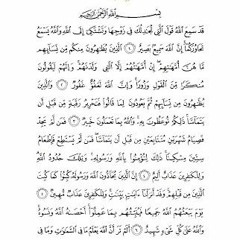 بِسْمِ اللَّهِ الرَّحْمَٰنِ الرَّحِيمِ
قَدْ سَمِعَ اللَّهُ قَوْلَ الَّتِي تُجَادِلُكَ فِي زَوْجِهَا وَتَشْتَكِي إِلَى اللَّهِ وَاللَّهُ يَسْمَعُ
تَحَاوُرَكُمَا إِنَّ اللَّهَ سَمِيعٌ بَصِيرٌ ١ الَّذِينَ يُظَاهِرُونَ مِنكُم مِّن نِّسَائِهِم
مَّا هُنَّ أُمَّهَاتِهِمْ إِنْ أُمَّهَاتُهُمْ إِلَّا اللَّائِي وَلَدْنَهُمْ وَإِنَّهُمْ لَيَقُولُونَ
مُنكَرًا مِّنَ الْقَوْلِ وَزُورًا وَإِنَّ اللَّهَ لَعَفُوٌّ غَفُورٌ ٢ وَالَّذِينَ
يُظَاهِرُونَ مِن نِّسَائِهِمْ ثُمَّ يَعُودُونَ لِمَا قَالُوا فَتَحْرِيرُ رَقَبَةٍ مِّن قَبْلِ أَن
يَتَمَاسَّا ذَٰلِكُمْ تُوعَظُونَ بِهِ وَاللَّهُ بِمَا تَعْمَلُونَ خَبِيرٌ ٣ فَمَن لَّمْ يَجِدْ
فَصِيَامُ شَهْرَيْنِ مُتَتَابِعَيْنِ مِن قَبْلِ أَن يَتَمَاسَّا فَمَن لَّمْ يَسْتَطِعْ فَإِطْعَامُ
سِتِّينَ مِسْكِينًا ذَٰلِكَ لِتُؤْمِنُوا بِاللَّهِ وَرَسُولِهِ وَتِلْكَ حُدُودُ اللَّهِ
وَلِلْكَافِرِينَ عَذَابٌ أَلِيمٌ ٤ إِنَّ الَّذِينَ يُحَادُّونَ اللَّهَ وَرَسُولَهُ كُبِتُوا كَمَا كُبِتَ
الَّذِينَ مِن قَبْلِهِمْ وَقَدْ أَنزَلْنَا آيَاتٍ بَيِّنَاتٍ وَلِلْكَافِرِينَ عَذَابٌ مُّهِينٌ ٥
يَوْمَ يَبْعَثُهُمُ اللَّهُ جَمِيعًا فَيُنَبِّئُهُم بِمَا عَمِلُوا أَحْصَاهُ اللَّهُ وَنَسُوهُ
وَاللَّهُ عَلَىٰ كُلِّ شَيْءٍ شَهِيدٌ ٦ أَلَمْ تَرَ أَنَّ اللَّهَ يَعْلَمُ مَا فِي السَّمَاوَاتِ وَمَا فِي